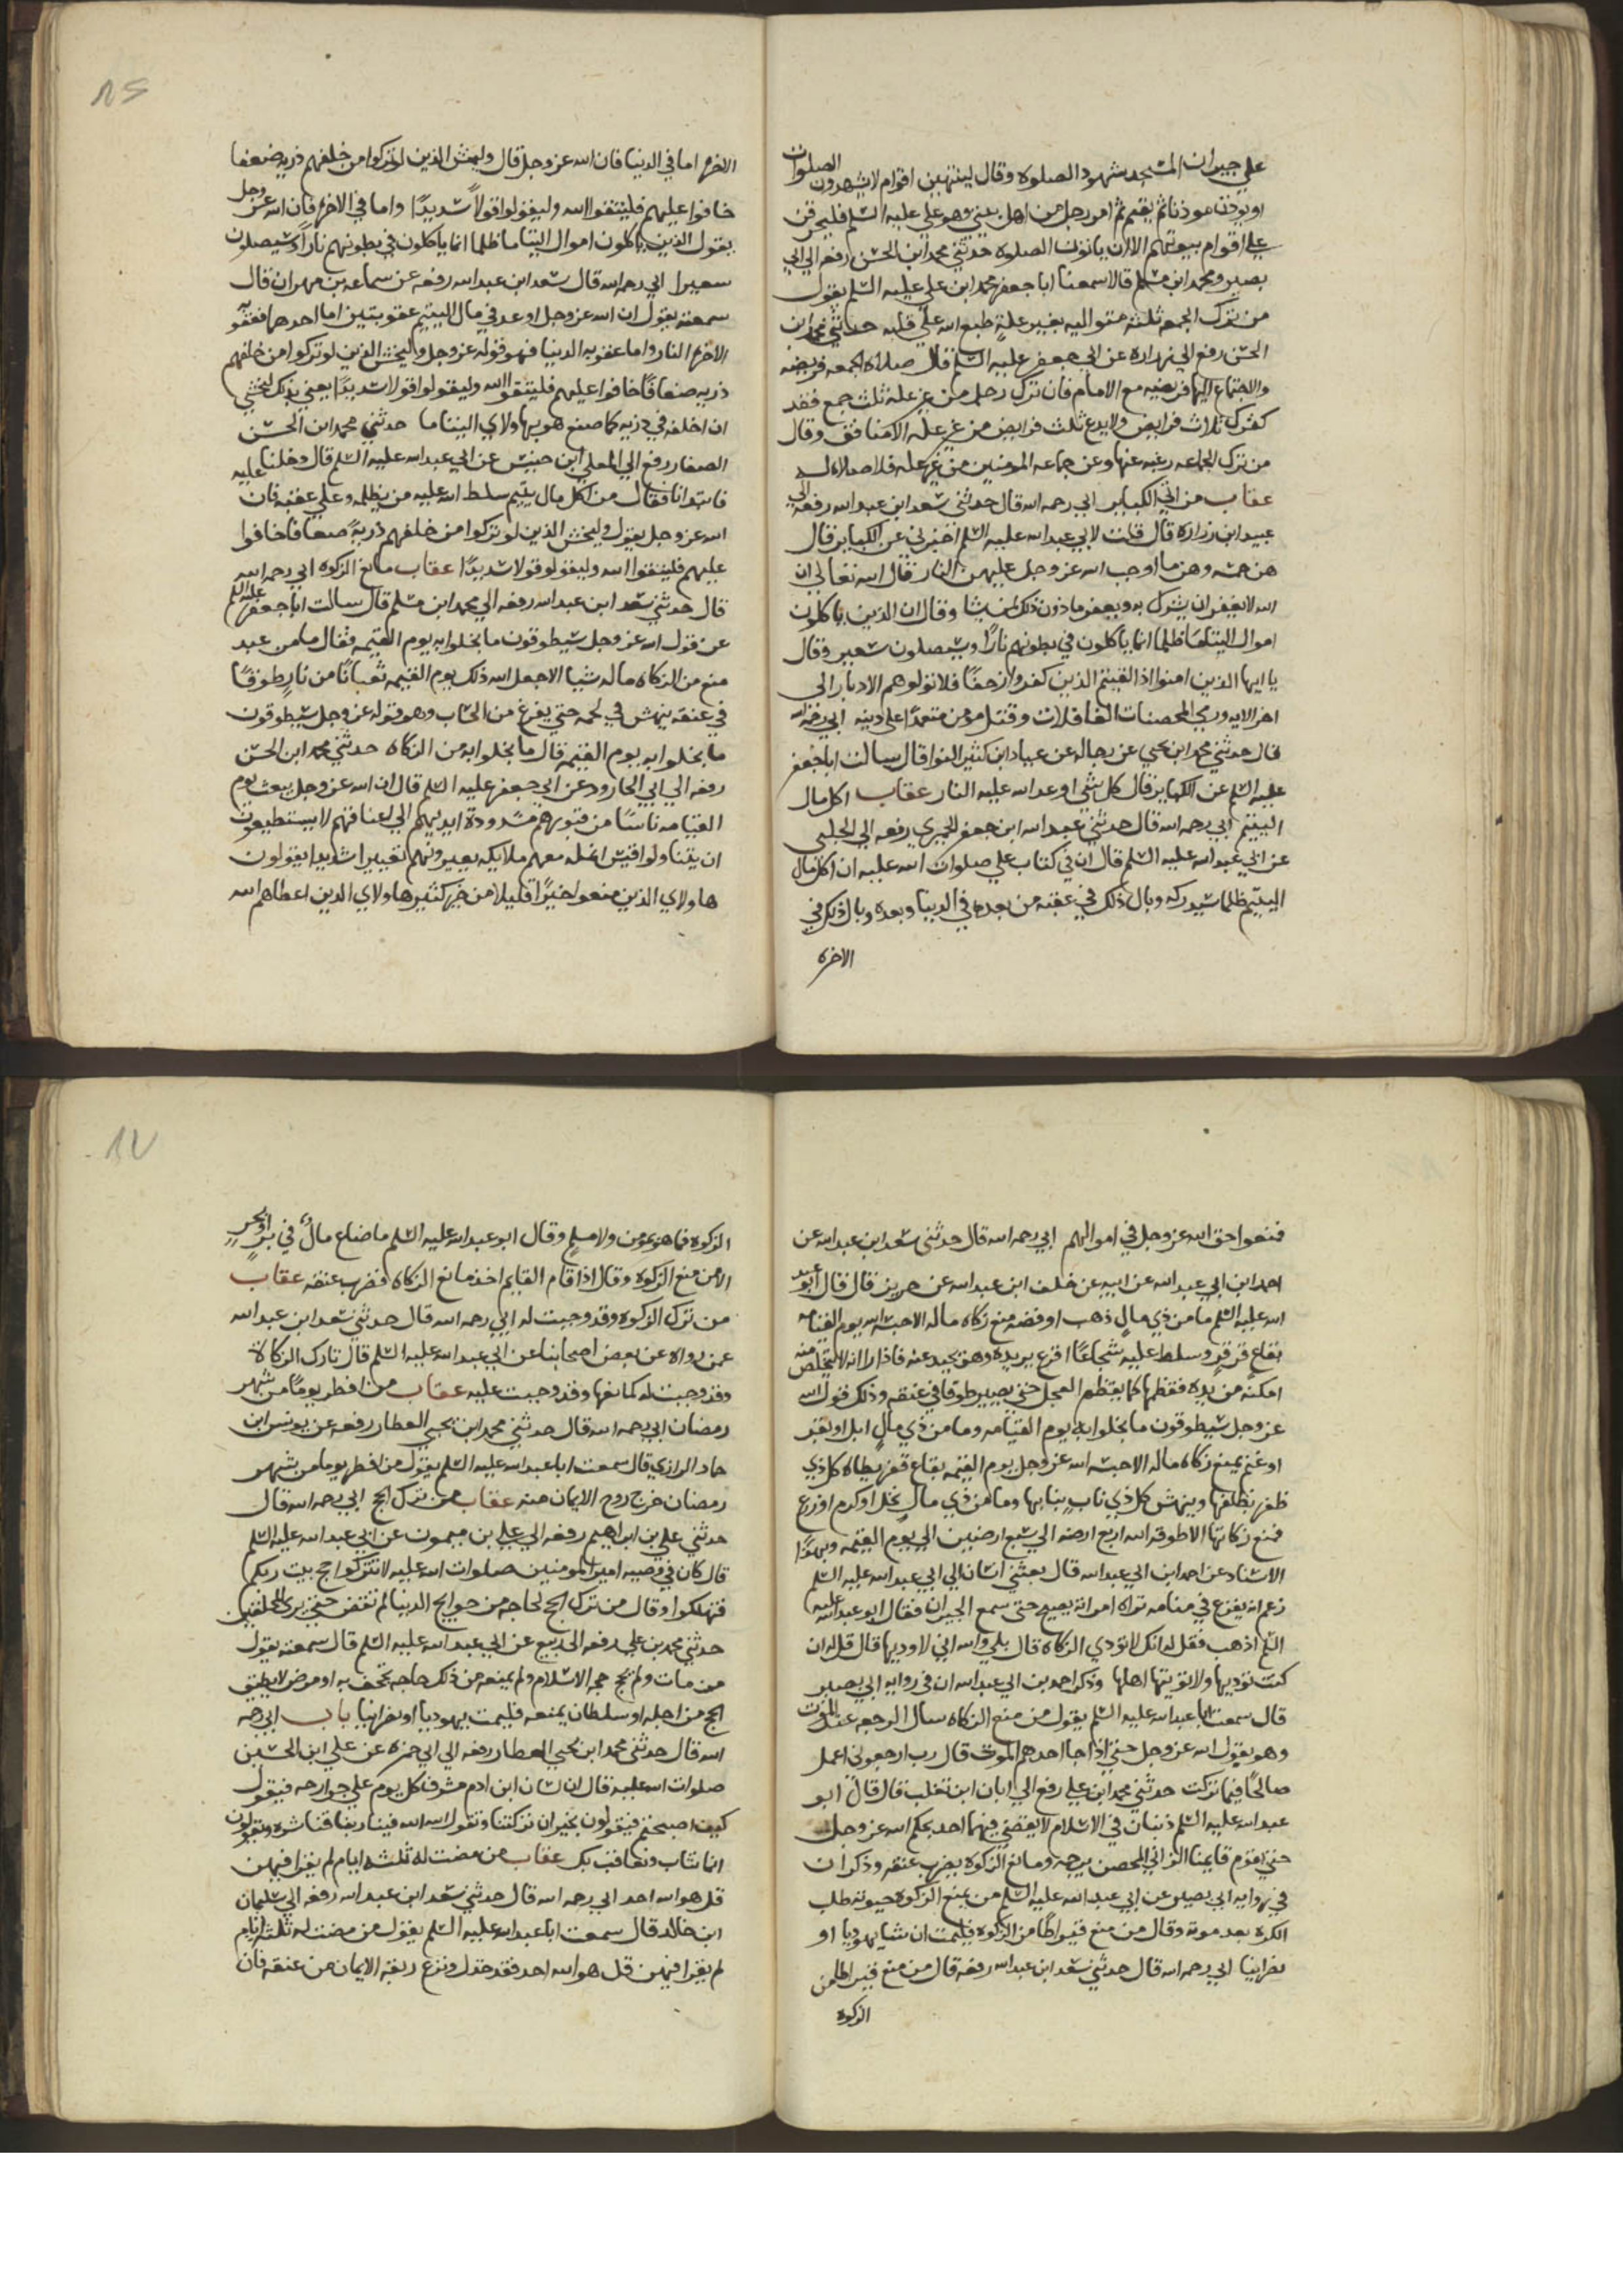 على جيران المسجد شهود الصلوه وقال لينتهين اقوام لا يشهدون الصلوات
او يوذن ثم يقيم ثم امر رجل من اهل بيتي وهو علي عليه السلم فليحرقن
علي اقوام بيوتهم الانهم لا ياتون الصلوه حدثني محمد ابن الحسن رفعه الي ابي
بصير ومحمد ابن مسلم قالا سمعنا ابا جعفر محمد ابن علي عليه السلم يقول
من ترك الجمعه ثلثه متواليه بغير علةٍ طبع الله علي قلبه حدثني محمد ابن
الحسن رفع الي زراره عن ابي جعفر عليه السلم قال صلاه الجمعه فريضه
والاجتماع اليها فريضه مع الامام فان ترك رجل من غير عله ثلث جمع فقد
ترك ثلاث فرايض ولا يدع ثلث فرايض من غير عله الا منافق وقال
من ترك الجماعه رغبه عنها وعن جماعه المومنين من غير عله فلا صلاه له
عقاب من اتي الكباير ابي رحمه الله قال حدثني سعد ابن عبد الله رفعه الي
عبيد ابن زراره قال قلت لابي عبد الله عليه السلم اخبرني عن الكباير قال
هن خمسه وهن ما اوجب الله عز وجل عليهن النار قال الله تعالي ان
الله لا يغفر ان يشرك به ويغفر ما دون ذلك لمن يشا وقال ان الذين ياكلون
اموال اليتاما ظلما انما ياكلون في بطونهم نارًا وسيصلون سعير وقال
يا ايها الذين امنوا اذا لقيتم الذين كفروا زحفًا فلا تولوهم الادبار الي
اخر الايه ورمي المحصنات الغافلات وقتل مومن متعمدًا علي دينه ابي رحمه الله
قال حدثني محمد ابن يحيي عن رجاله عن عباد ابن كثير النوا قال سالت ابا جعفر
عليه السلم عن الكباير قال كل شي اوعد الله عليه النار عقاب اكل مال
اليتيم ابي رحمه الله قال حدثني عبد الله ابن جعفر الحميري رفعه الي الحلبي
عن ابي عبد الله عليه السلم قال ان في كتاب علي صلوات الله عليه ان اكل مال
اليتيم ظلما سيدركه وبال ذلك في عقبه من بعده في الدنيا وبعده وبال ذلك في
الاخره
الاخره اما في الدنيا فان الله عز وجل قال وليخش الذين لو تركوا من خلفهم ذريه ضعفا
خافوا عليهم فليتقوا الله وليقولوا قولاً سديدًا واما في الاخره فان الله عز وجل
يقول الذين ياكلون اموال اليتاما ظلما انما ياكلون في بطونهم نارًا وسيصلون
سعيرا ابي رحمه الله قال سعد ابن عبد الله رفعه عن سماعه بن مهران قال
سمعته يقول ان الله عز وجل اوعد في مال اليتيم عقوبتين اما احدهما فعقوبه
الاخره النار واما عقوبه الدنيا فهو قوله عز وجل وليخش الذين لو تركوا من خلفهم
ذريه ضعافًا خافوا عليهم فليتقوا الله وليقولوا قولا سديدًا يعني بذلك ليخشي
ان اخلفه في ذريه كما صنع هو بهاولاي اليتاما حدثني محمد ابن الحسن
الصفار رفع الي المعلي ابن خنيس عن ابي عبد الله عليه السلم قال دخلنا عليه
فابتدانا فقال من اكل مال يتيم سلط الله عليه من يظلمه وعلي عقبه فان
الله عز وجل يقول وليخش الذين لو تركوا من خلفهم ذريةً ضعافا خافوا
عليهم فليتقوا الله وليقولو قولا سديدًا عقاب مانع الزكوه ابي رحمه الله
قال حدثني سعد ابن عبد الله رفعه الي محمد ابن مسلم قال سالت ابا جعفر عليه السلم
عن قول الله عز وجل سيطوقون ما بخلوا به يوم القيمه فقال ما من عبد
منع من الزكاه ماله شيا الا جعل الله ذلك يوم القيمه ثعبانًا من نار طوقًا
في عنقه ينهش في لحمه حتي يفرغ من الحساب وهو قوله عز وجل سيطوقون
ما بخلوا به يوم القيمه قال ما بخلوا به من الزكاه حدثني محمد ابن الحسن
رفعه الي ابي الجارود عن ابي جعفر عليه السلم قال ان الله عز وجل يبعث يوم
القيامه ناسًا من قبورهم مشدودة ايديهم الي اعناقهم لا يستطيعون
ان يتناولوا قيس انمله معهم ملايكه يعيرونهم تعييرا شديدا يقولون
هاولاي الذين منعوا خيرًا قليلا من خير كثير هاولاي الذين اعطاهم الله
فمنعوا حق الله عز وجل في اموالهم ابي رحمه الله قال حدثني سعد ابن عبد الله عن
احمد ابن ابي عبد الله عن ابيه عن خلف ابن عبد الله عن حريز قال قال ابو عبد
الله عليه السلم ما من ذي مالٍ ذهب او فضه منع زكاه ماله الا حبسه الله يوم القيامه
بقاعٍ قرقرٍ وسلط عليه شجاعًا اقرع يريده وهو يحيد عنه فاذا راا انه لا يتخلص منه
امكنه من يده فقظمها كما يقظم العجل حتي يصير طوقا في عنقه وذلك قول الله
عز وجل سيطوقون ما بخلوا به يوم القيامه وما من ذي مالٍ ابل او بقر
او غنم يمنع زكاه ماله الا حبسه الله عز وجل يوم القيمه بقاع قفر يطاه كل ذي
ظفر بظلفها وينهش كل ذي نابٍ بنابها وما من ذي مال نخل او كرم او زرع
فمنع زكاتها الا طوقه الله اربع ارضه الي سبع ارضين الي يوم القيمه وبهذا
الاسناد عن احمد ابن ابي عبد الله قال بعثني انسان الي ابي عبد الله عليه السلم
زعم انه يفزع في منامه تراه امراته يصيح حتي سمع الجيران فقال ابو عبد الله عليه
السلم اذهب فقل له انك لا تودي الزكاه قال بلي والله اني لاوديها قال قل له ان
كنت توديها ولا توتيها اهلها وذكر احمد بن ابي عبد الله ان في روايه ابي بصير
قال سمعت ابا عبد الله عليه السلم يقول من منع الزكاه سال الرجعه عند الموت
وهو يقول الله عز وجل حتي اذا جا احدهم الموت قال رب ارجعوني اعمل
صالحًا فيما تركت حدثني محمد ابن علي رفع الي ابان ابن تغلب قال قال ابو
عبد الله عليه السلم ذنبان في الاسلام لا يقضي فيهما احد بحكم الله عز وجل
حتي يقوم قايمنا الزاني المحصن يرجمه ومانع الزكوه يضرب عنقه وذكر ان
في روايه ابي بصير عن ابي عبد الله عليه السلم من يمنع الزكوه حيوته طلب
الكره بعد موته وقال من منع قيراطًا من الزكوه فليمت ان شا يهوديا او
نصرانيا ابي رحمه الله قال حدثني سعد ابن عبد الله رفعه قال من منع قيراطا من
الزكوه
الزكوه فما هو مومن ولا مسلم وقال ابو عبد الله عليه السلم ما ضاع مالٌ في برٍ او بحر
الا من منع الزكوه وقال اذا قام القايم اخذ مانع الزكاه فضرب عنقه عقاب
من ترك الزكوه وقد وجبت له ابي رحمه الله قال حدثني سعد ابن عبد الله
عمن رواه عن بعض اصحابنا عن ابي عبد الله عليه السلم قال تارك الزكاة
وقد وجبت له كمانعها وقد وجبت عليه عقاب من افطر يومًا من شهر
رمضان ابي رحمه الله قال حدثني محمد ابن يحيي العطار رفعه عن يونس ابن
حماد الرازي قال سمعت ابا عبد الله عليه السلم يقول من افطر يوما من شهر
رمضان خرج روح الايمان منه عقاب من ترك الحج ابي رحمه الله قال
حدثني علي بن ابراهيم رفعه الي علي بن ميمون عن ابي عبد الله عليه السلم
قال كان في وصيه امير المومنين صلوات الله عليه لا تتركوا حج بيت ربكم
فتهلكوا وقال من ترك الحج لحاجه من حوايج الدنيا لم تقض حتي يري المحلقين
حدثني محمد بن علي رفعه الي ربيع عن ابي عبد الله عليه السلم قال سمعته يقول
من مات ولم يحج حجه الاسلام ولم يمنعه من ذلك حاجه تجحف به او مرض لا يطيق
الحج من اجله او سلطان يمنعه فليمت يهوديا او نصرانيا باب ابي رحمه
الله قال حدثني محمد ابن يحيي العطار رفعه الي ابي حمزه عن علي ابن الحسين
صلوات الله عليه قال ان لسان ابن ادم مشرف كل يوم علي جوارحه فيقول
كيف اصبحتم فيقولون بخير ان تركتنا وتقول الله الله فينا ويناشدوه ويقولون
انما نثاب ونعاقب بك عقاب من مضت له ثلثه ايام لم يقرا فيهن
قل هو الله احد ابي رحمه الله قال حدثني سعد ابن عبد الله رفعه الي سليمان
ابن خالد قال سمعت ابا عبد الله عليه السلم يقول من مضت له ثلثه ايام
لم يقرا فيهن قل هو الله احد فقد خذل ونزع ربقة الايمان من عنقه فان